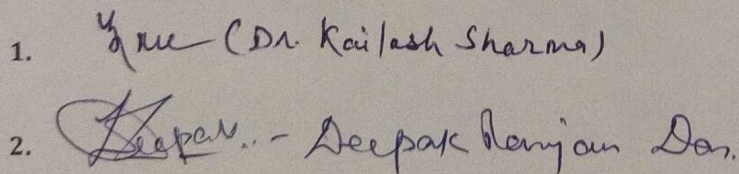 1. (Dr. Kailash Sharma)
2. Deepak.. - Deepak Ranjan Das.